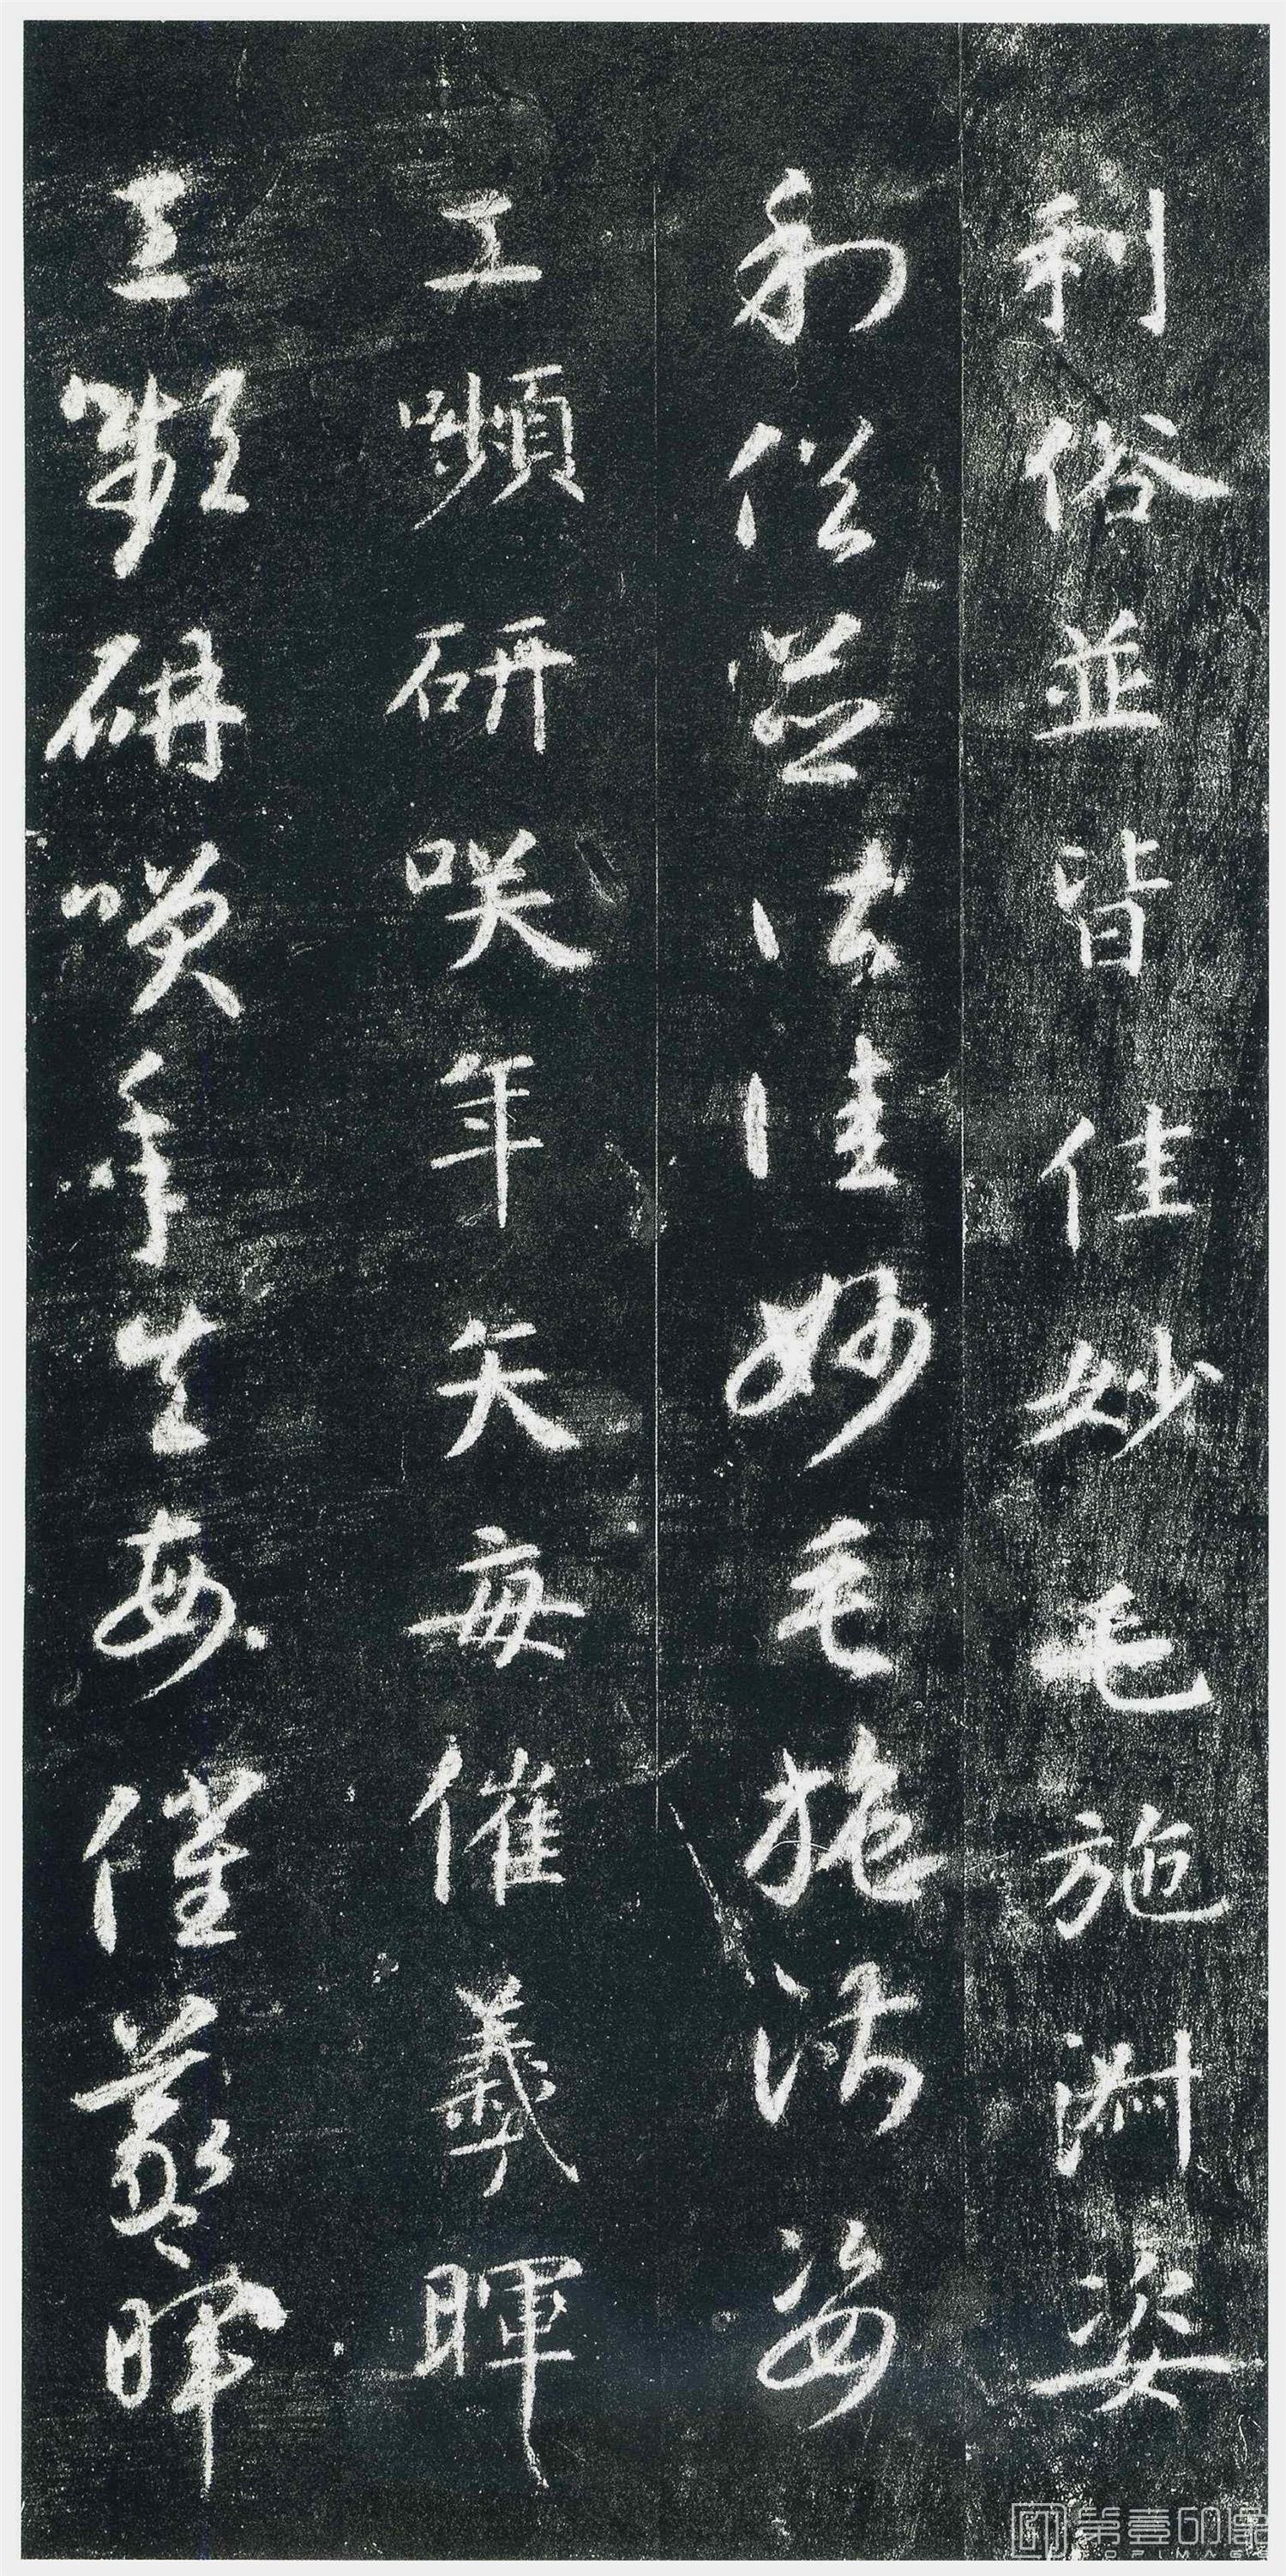 利俗並皆佳妙毛施淑姿
利俗並皆佳妙毛施淑姿
工嚬研咲年矢每催羲暉
工嚬研笑年矢每催羲暉
第壹印像
TOPIMAGE